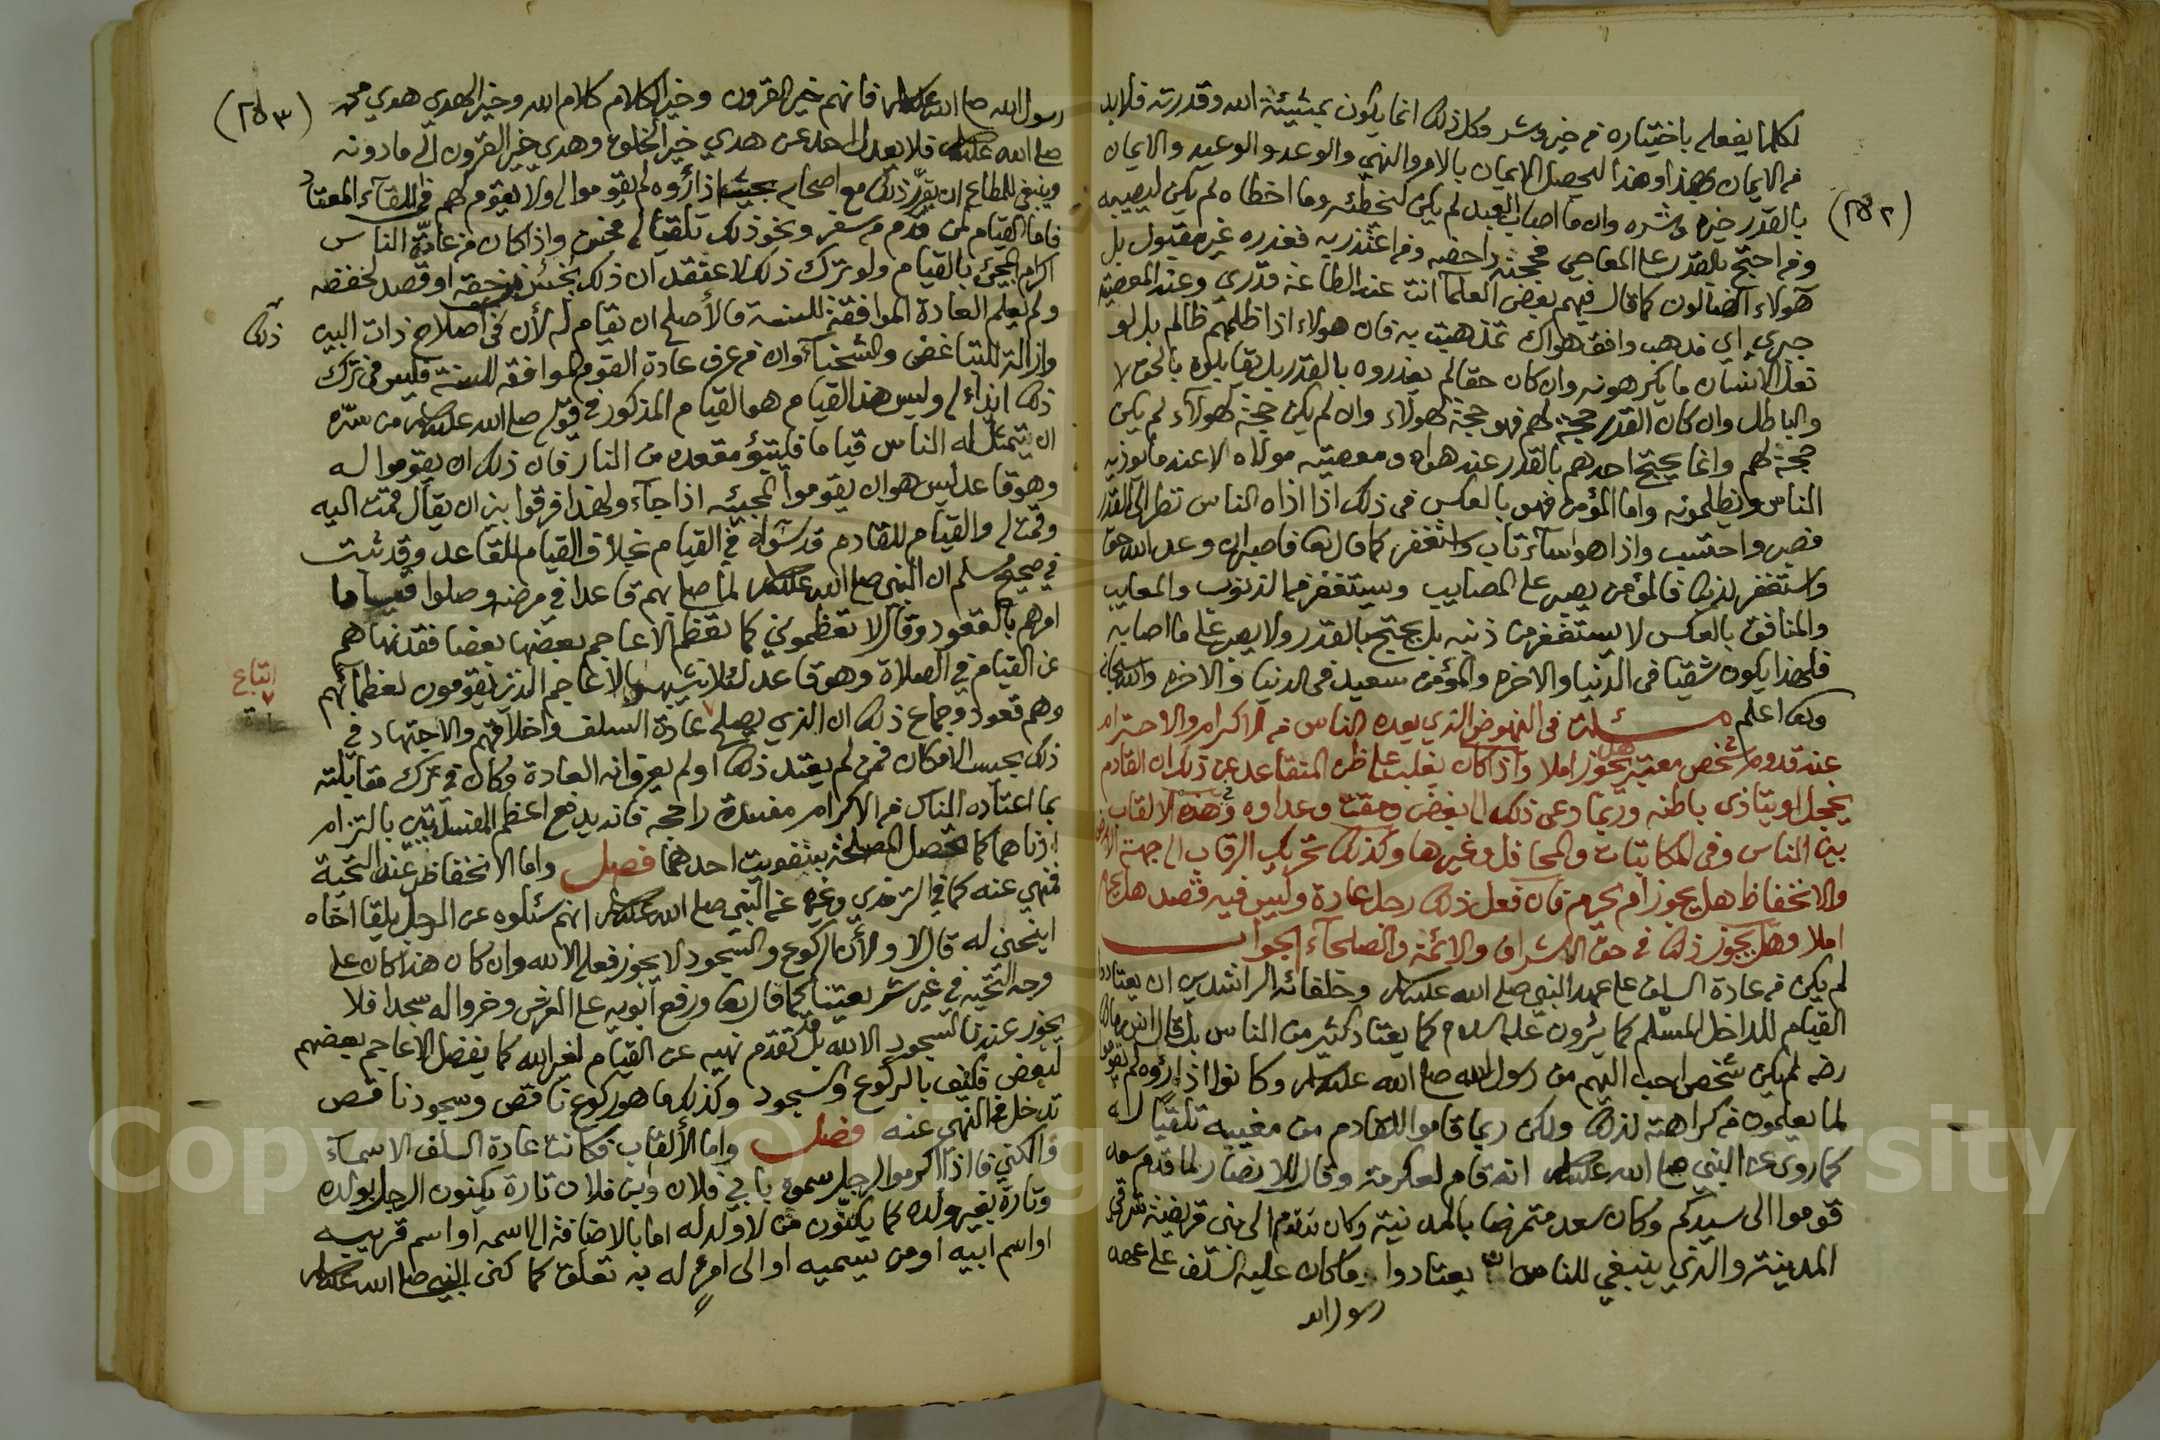 لكلما يفعله باختياره من خير وشر وكل ذلك انما يكون بمشيئة الله وقدرته فلا بد
من الايمان بهذا وهذا ليحصل الايمان بالامر والنهي والوعد والوعيد والايمان
(٢٥٢)
بالقدر خيره وشره وان ما اصاب العبد لم يكن ليخطئه وما اخطاه لم يكن ليصيبه
ومن احتج بالقدر على المعاصي فحجته داحضه ومن اعتذر به فعذره غير مقبول بل
هولاء الضالون كما قال فيهم بعض العلما انت عند الطاعة قدري وعند المعصية
جبري اي مذهب وافق هواك تمذهبت به فان هولاء اذا ظلمهم ظالم بل لو
فعل الانسان ما يكرهونه وان كان حقا لم يعذروه بالقدر بل يقابلوه بالحق لا
والباطل وان كان القدر حجة لهم فهو حجة لهولاء وان لم يكن حجة لهولاء لم يكن
حجة لهم وانما يحتج احدهم بالقدر عند هواه ومعصية مولاه لا عند ما يوذيه
الناس ويظلمونه واما المؤمن فهو بالعكس في ذلك اذا اذاه الناس نظر الى القدر
فصبر واحتسب واذا هو اسآء تاب واستغفر كما قال تعا فاصبر ان وعد الله حق
واستغفر لذنبك فالمؤمن يصبر على المصايب ويستغفر من الذنوب والمعايب
والمنافق بالعكس لا يستغفر من ذنبه بل يحتج بالقدر ولا يصبر على ما اصابه
فلهذا يكون شقيا في الدنيا والاخره والمؤمن سعيد في الدنيا والاخره والله سبحانه
وتعا اعلم مسئلة في النهوض الذي يعده الناس من الاكرام والاحترام
عند قدوم شخص معتبر هل يجوز ام لا واذا كان يغلب على ظن المتقاعد عن ذلك ان القادم
يخجل او يتاذى باطنه وربما دعى ذلك الى بغض ومقت وعداوه وهذه الالقاب
بين الناس وفي المكاتبات والمحافل وغيرها وكذلك تحريك الرقاب الى جهة الارض
والانخفاظ هل يجوز ام يحرم فان فعل ذلك رجل عادة وليس فيه قصد هل يحرم
ام لا وهل يجوز ذلك في حق الاشراف والائمة والصلحآء الجواب
لم يكن من عادة السلف على عهد النبي صلى الله عليه وسلم وخلفائه الراشدين ان يعتادوا
القيام للداخل المسلم كما يرون عليه السلام كما يعتاد كثير من الناس بل قال انس بن مالك
رضه لم يكن شخص احب اليهم من رسول الله صلى الله عليه وسلم وكانوا اذا رؤه لم يقوموا
لما يعلمون من كراهته لذلك ولكن ربما قاموا للقادم من مغيبه تلقيا له
كما روى عن النبي صلى الله عليه وسلم انه قام لعكرمة وقال للانصار لما قدم سعد
قوموا الى سيدكم وكان سعد متمرضا بالمدينة وكان قد قدم الى بني قريضة شرقي
المدينة والذي ينبغي للناس ان يعتادوا ما كان عليه السلف على عهد
رسول الله
(٢٥٣)
رسول الله صلى الله عليه وسلم فانهم خير القرون وخير الكلام كلام الله وخير الهدي هدي محمد
صلى الله عليه وسلم فلا يعدل احد عن هدي خير الخلق وهدي خير القرون الى ما دونه
وينبغي للمطاع ان يقرر ذلك مع اصحابه بحيث اذا رؤه لم يقوموا له ولا يقوم لهم في اللقآء المعتاد
فاما القيام لمن قدم من سفر ونحو ذلك تلقيا له فحسن واذا كان من عادة الناس
اكرام المجيئ بالقيام ولو ترك ذلك لاعتقد ان ذلك بخس في حقه او قصد لخفضه
ولم يعلم العادة الموافقة للسنة فالأصلح ان يقام له لأن في اصلاح ذات البين
ذلك
وازالة للتباغض والشحنآء وان من عرف عادة القوم الموافقه للسنة فليس في ترك
ذلك ايذاء له وليس هذا القيام هو القيام المذكور في قوله صلى الله عليه وسلم من سره
ان يتمثل له الناس قياما فليتبؤ مقعده من النار فان ذلك ان يقوموا له
وهو قاعد ليس هو ان يقوموا لمجيئه اذا جآء ولهذا فرقوا بين ان يقال قمت اليه
وقمت له والقيام للقادم قد ساواه في القيام بخلاف القيام للقاعد وقد ثبت
في صحيح مسلم ان النبي صلى الله عليه وسلم لما صلى بهم قاعدا في مرضه وصلوا قياما
امرهم بالقعود وقال لا تعظموني كما تعظم الاعاجم بعضها بعضا فقد نهاهم
عن القيام في الصلاة وهو قاعد لئلا يتشبهوا بالاعاجم الذين يقومون لعظمائهم
اتباع
وهم قعود وجماع ذلك ان الذي يصلح عادة السلف واخلاقهم والاجتهاد في
ذلك بحسب الامكان فمن لم يعتد ذلك او لم يعرف انه العادة وكان في ترك مقابلته
بما اعتاده الناس من الاكرام مفسدة راجحه فانه يدفع اعظم المفسدتين بالتزام
ادناهما كما تحصل المصلحة بتفويت احدهما فصل واما الانخفاظ عند التحية
فنهي عنه كما في الترمذي وغيره عن النبي صلى الله عليه وسلم انهم سئلوه عن الرجل يلقا اخاه
اينحني له قال لا ولأن الركوع والسجود لا يجوز فعله الا لله وان كان هذا كان على
وجه التحيه في غير شريعتنا كما قال تعا ورفع ابويه على العرش وخروا له سجدا فلا
يجوز عندنا السجود الا لله بل قد تقدم نهيه عن القيام لغير الله كما يفعل الاعاجم بعضهم
لبعض فكيف بالركوع والسجود وكذلك ما هو ركوع ناقص وسجود ناقص
تدخل في النهي عنه فصل واما الألقاب فكانت عادة السلف الاسمآء
والكنى فاذا اكرموا الرجل سموه بابي فلان وابن فلان تارة يكنون الرجل بولده
وتارة بغير ولده كما يكنون من لا ولد له اما بالاضافة الى اسمه او اسم قريبه
او اسم ابيه او من يسميه او الى امر له به تعلق كما كنى النبي صلى الله عليه وسلم
Copyright © King Saud University